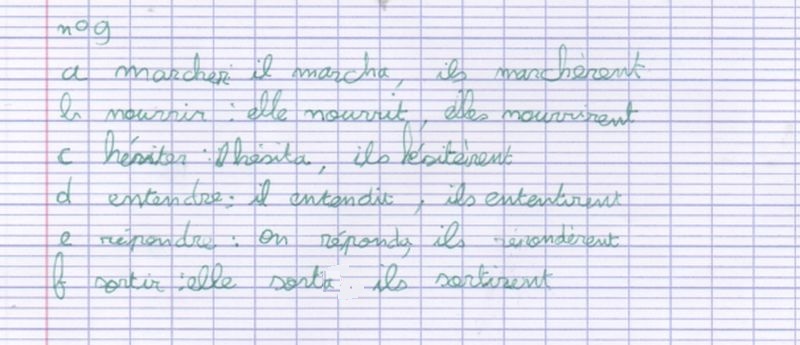 n°9
a marcher: il marcha, ils marchèrent
b nourrir : elle nourrit, elles nourrirent
c hésiter : Il hésita, ils hésitèrent
d entendre: il entendit, ils ententirent
e répondre: on réponda, ils répondèrent
f sortir : elle sorta ils sortirent